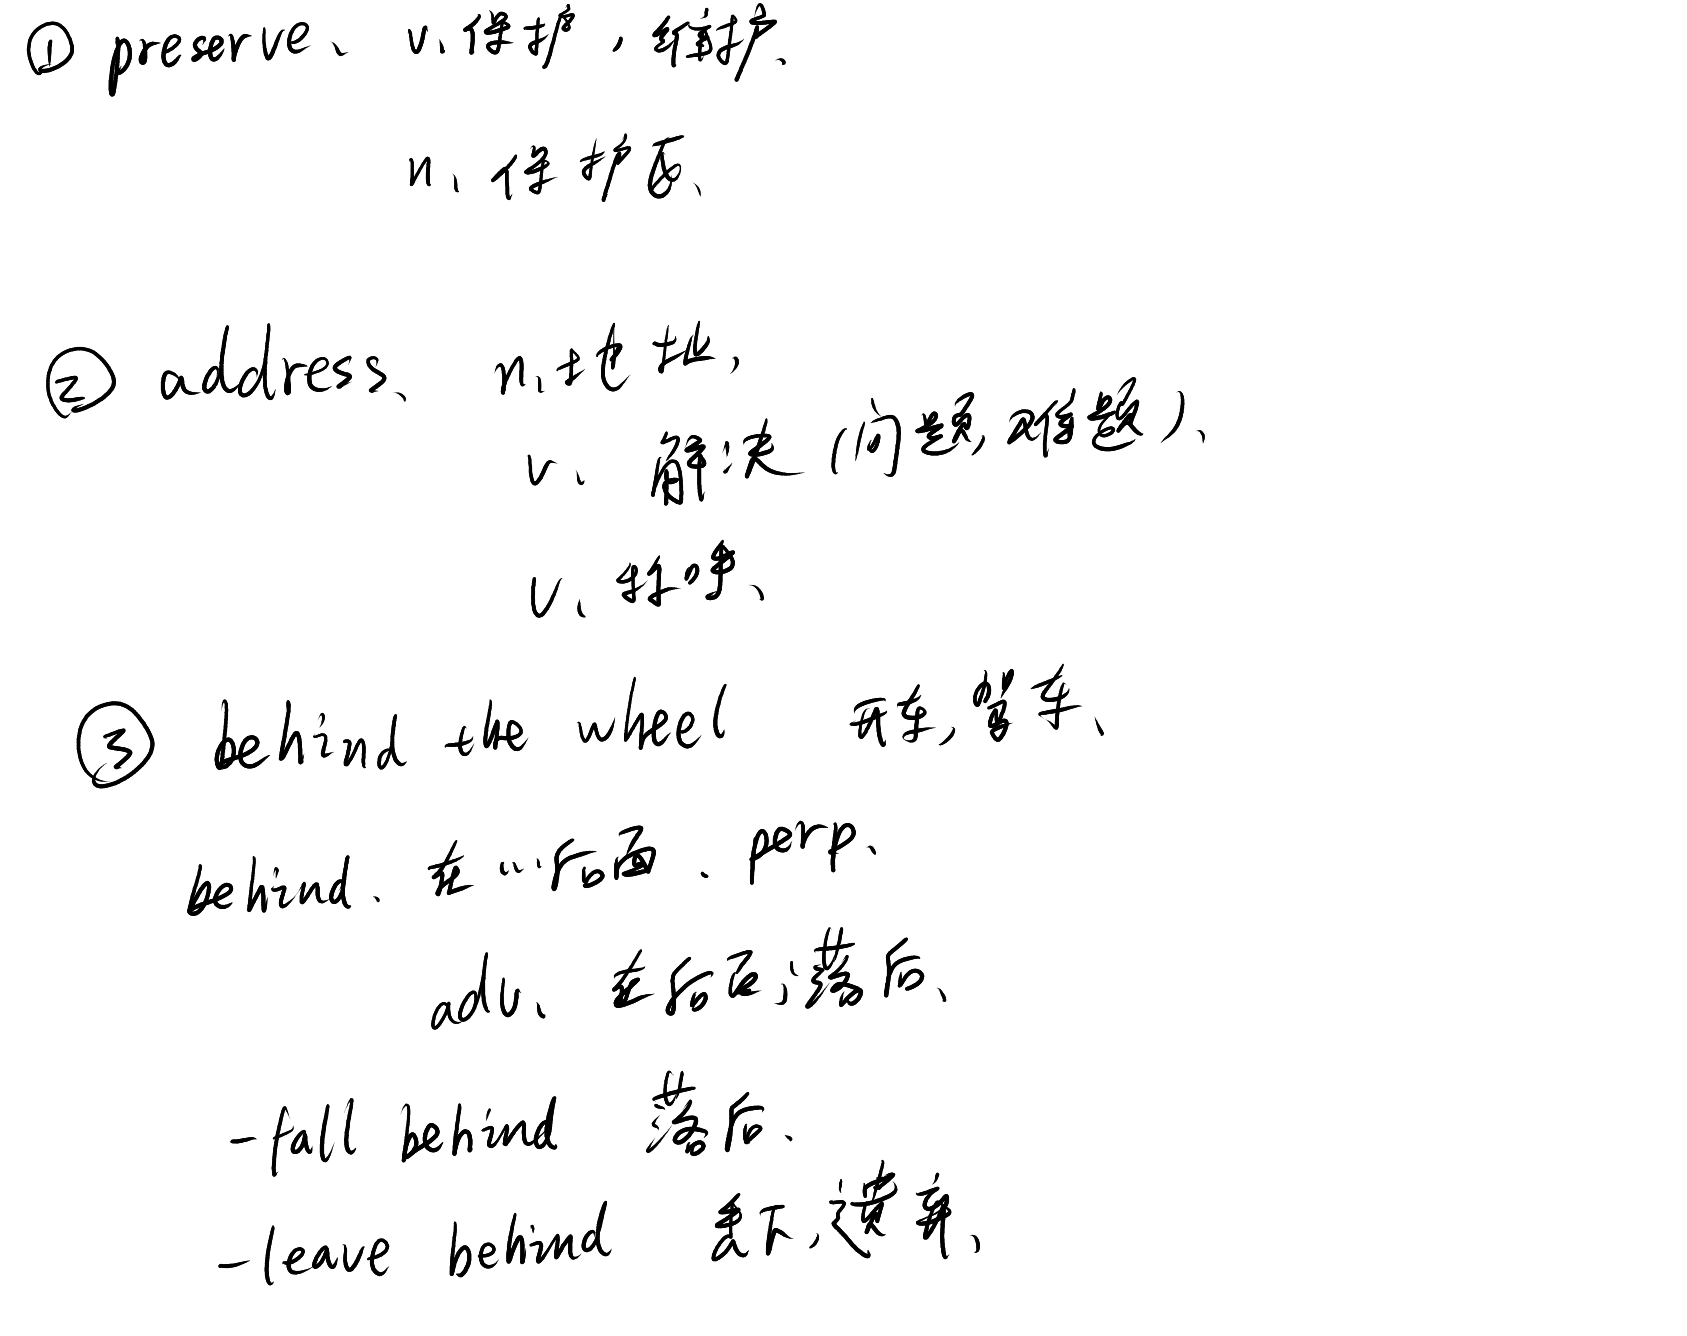 ① preserve、 v、保护，维护、
n、保护区、
② address、 n、地址，
v、解决（问题，难题）、
v、称呼、
③ behind the wheel 开车，驾车、
behind、在…后面、perp、
adv、在后面；落后、
-fall behind 落后、
-leave behind 丢下，遗弃、